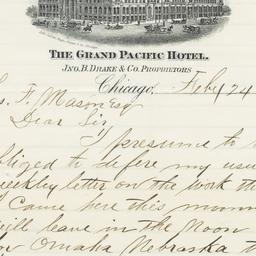 THE GRAND PACIFIC HOTEL.
JNO. B. DRAKE & CO. PROPRIETORS
Chicago, Feby 24
s. F. Mason Esq
Dear Sir
I presume to
obliged to defere my usu
weekley letter on the work th
I Came here this morn
will leave in the Noon
Omaha Nebraska